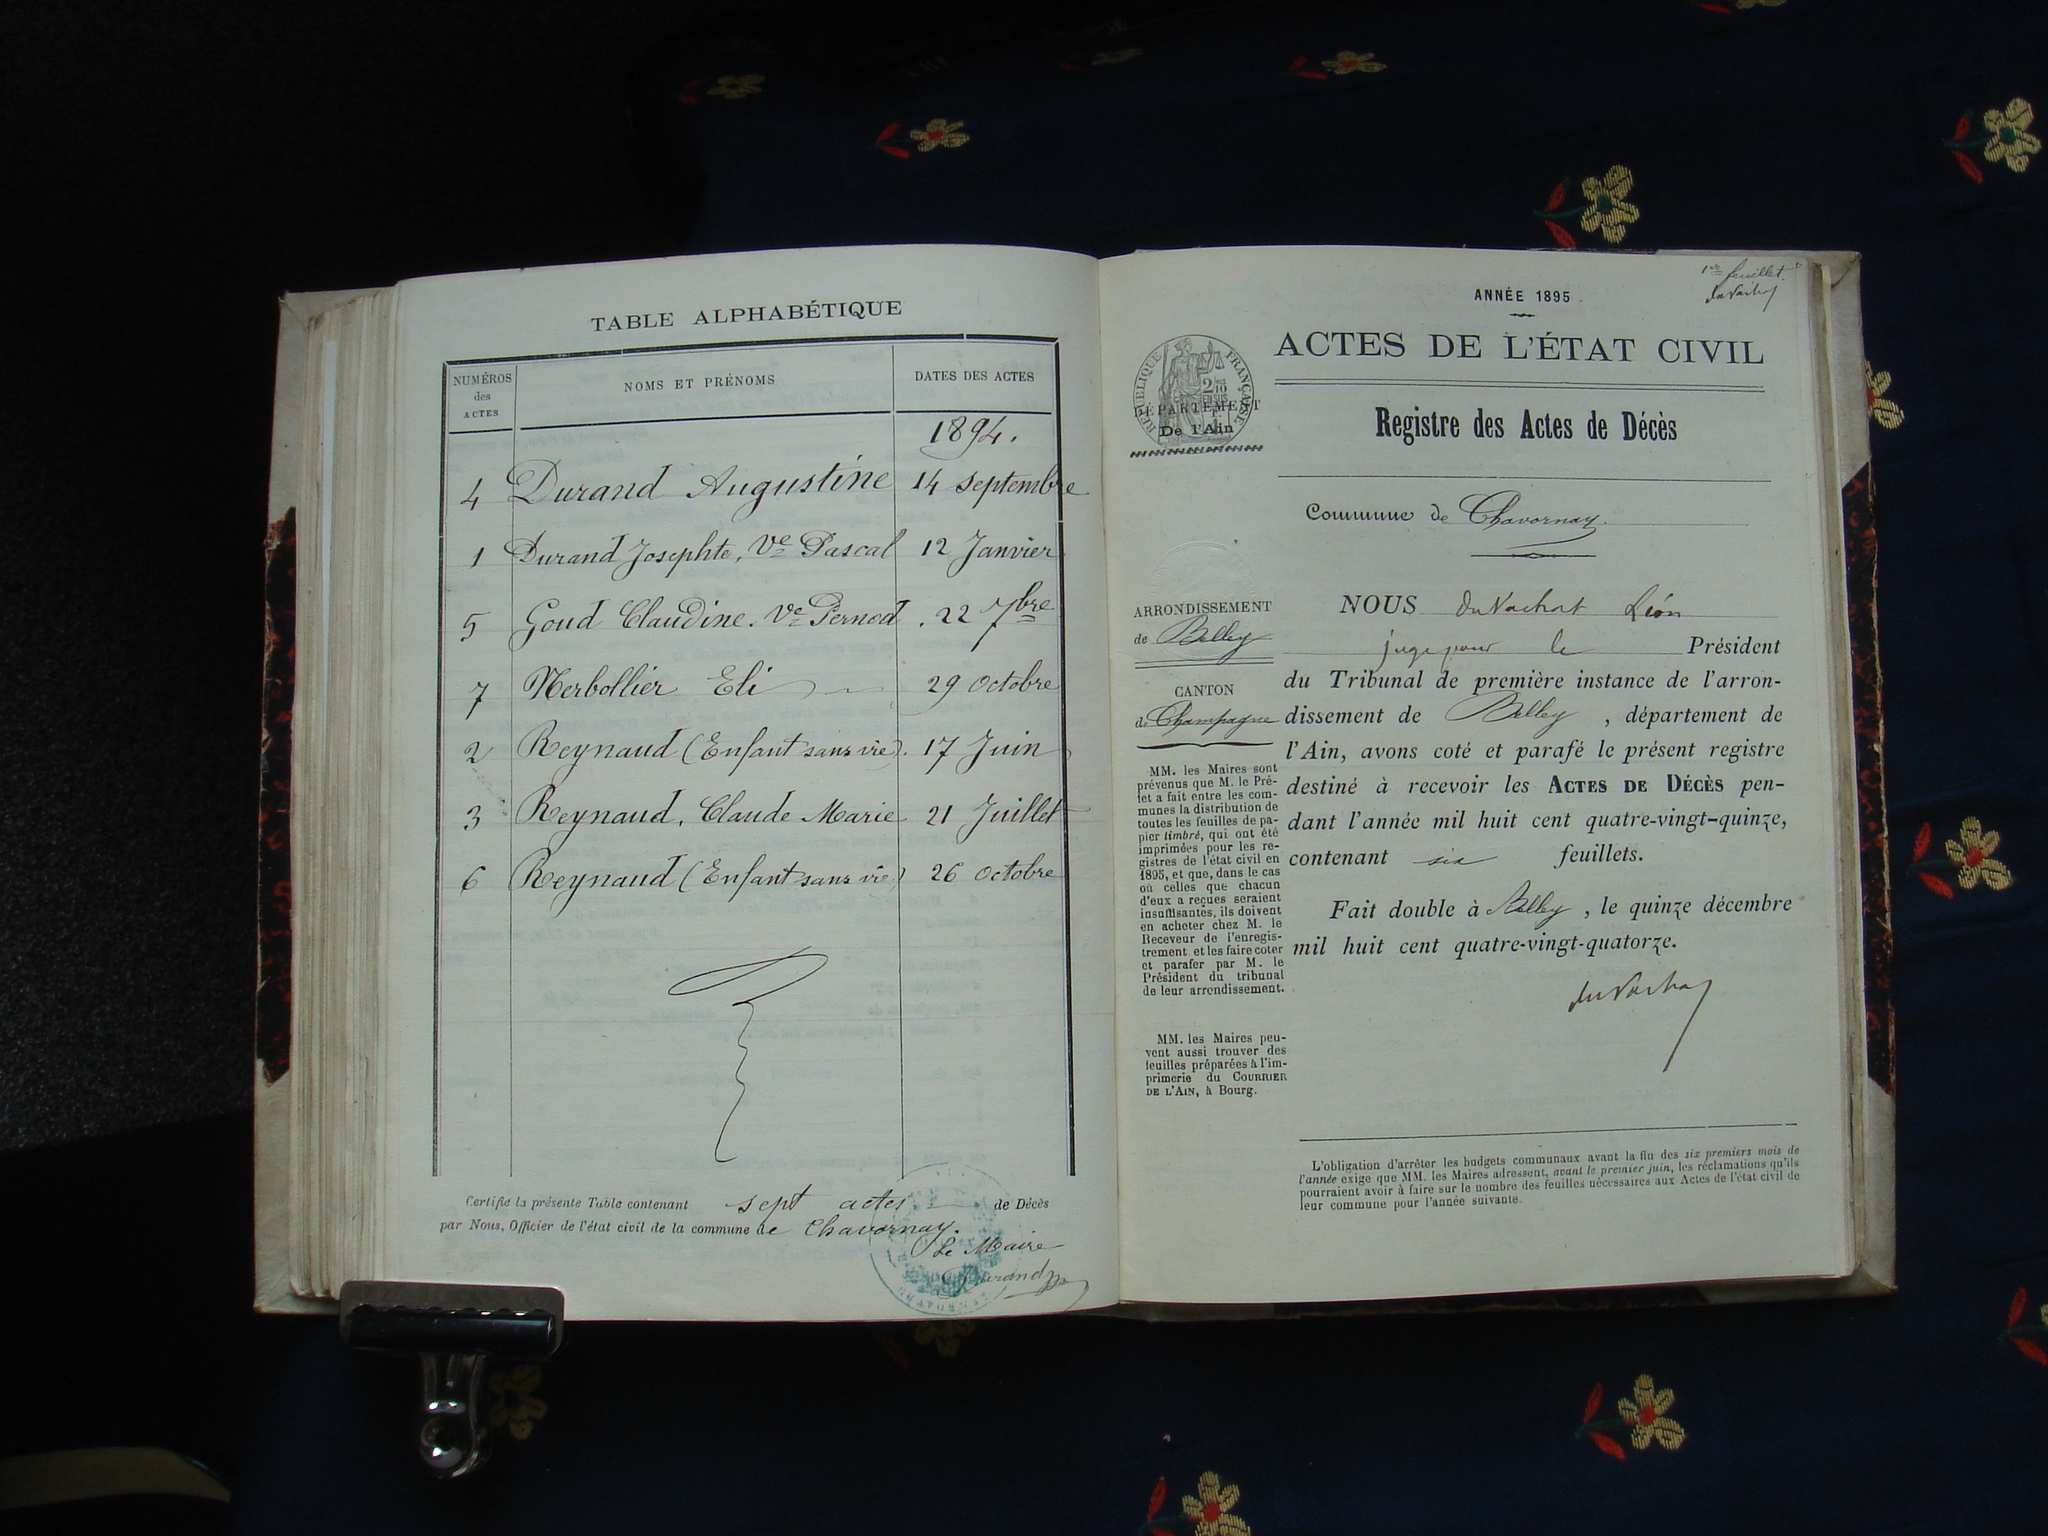 TABLE ALPHABÉTIQUE
NUMÉROS des ACTES
NOMS ET PRÉNOMS
DATES DES ACTES
1894.
4 Durand Augustine 14 septembre
1 Durand Josephte, Ve Pascal 12 Janvier
5 Goud Claudine. Ve Pernod . 22 7bre
7 Nerbollier Eli 29 octobre
2 Reynaud (Enfant sans vie). 17 Juin
3 Reynaud, Claude Marie 21 Juillet
6 Reynaud (Enfant sans vie) 26 octobre
Certifie la présente Table contenant sept actes de Décès
par Nous, Officier de l'état civil de la commune de Chavornay.
Le Maire
Durand
1er feuillet.
ANNÉE 1895
ACTES DE L'ÉTAT CIVIL
RÉPUBLIQUE FRANÇAISE
DÉPARTEMENT
De l'Ain
Registre des Actes de Décès
Commune de Chavornay.
ARRONDISSEMENT
de Belley
CANTON
de Champagne
MM. les Maires sont
prévenus que M. le Pré-
fet a fait entre les com-
munes la distribution de
toutes les feuilles de pa-
pier timbré, qui ont été
imprimées pour les re-
gistres de l'état civil en
1895, et que, dans le cas
où celles que chacun
d'eux a reçues seraient
insuffisantes, ils doivent
en acheter chez M. le
Receveur de l'enregis-
trement et les faire coter
et parafer par M. le
Président du tribunal
de leur arrondissement.
MM. les Maires peu-
vent aussi trouver des
feuilles préparées à l'im-
primerie du COURRIER
DE L'AIN, à Bourg.
NOUS Léon
juge pour le Président
du Tribunal de première instance de l'arron-
dissement de Belley, département de
l'Ain, avons coté et parafé le présent registre
destiné à recevoir les ACTES DE DÉCÈS pen-
dant l'année mil huit cent quatre-vingt-quinze,
contenant six feuillets.
Fait double à Belley, le quinze décembre
mil huit cent quatre-vingt-quatorze.
L'obligation d'arrêter les budgets communaux avant la fin des six premiers mois de
l'année exige que MM. les Maires adressent, avant le premier juin, les réclamations qu'ils
pourraient avoir à faire sur le nombre des feuilles nécessaires aux Actes de l'état civil de
leur commune pour l'année suivante.